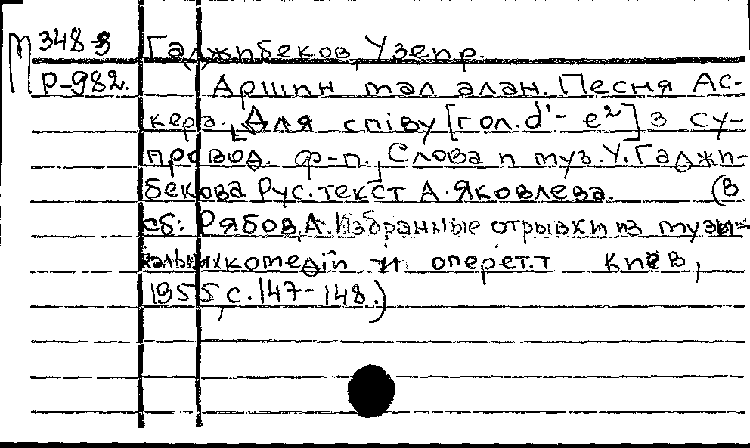 М 348-3 Гаджибеков, Узеир.
Р-982. Аршин мал алан. Песня Ас-
кера. [Для співу [гол. d¹- e²] з су-
провод. ф-п., Слова и муз. У. Гаджи-
бекова Рус. текст А. Яковлева. (В
сб: Рябов, А. Избранные отрывки из музы-
кальных комедій и оперет.т Киев,
1955, с. 147-148.)